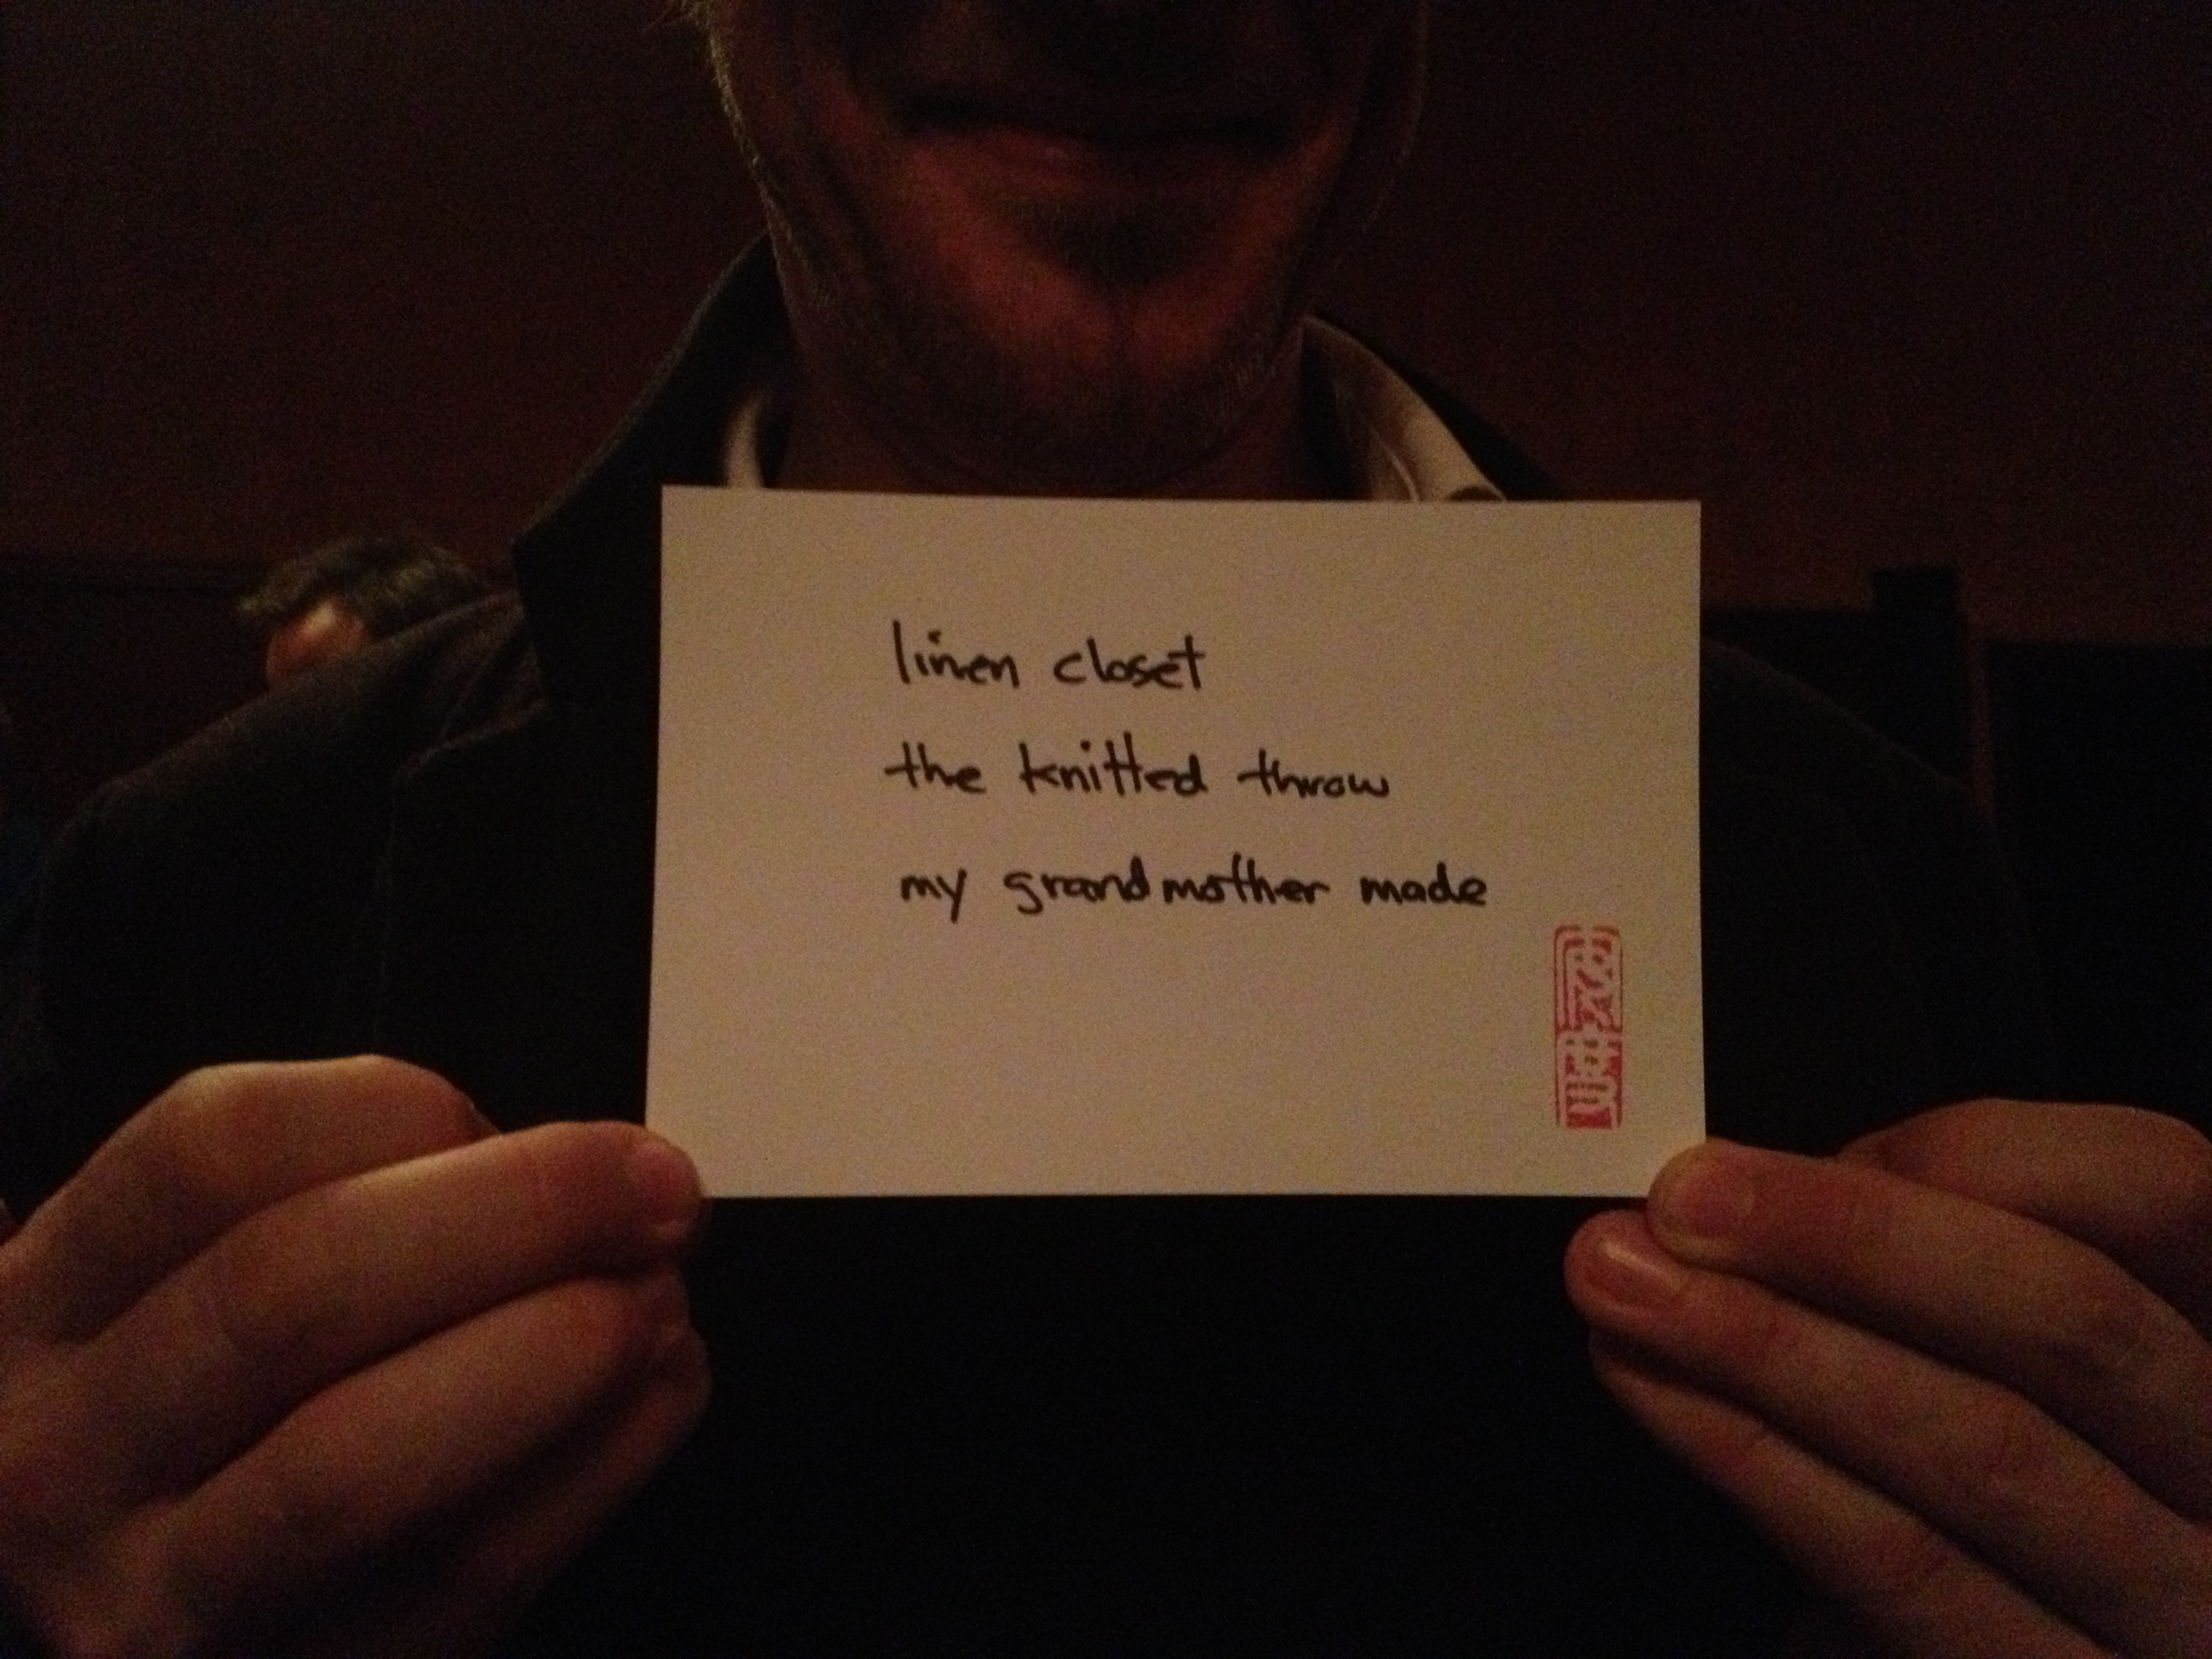 linen closet
the knitted throw
my grandmother made